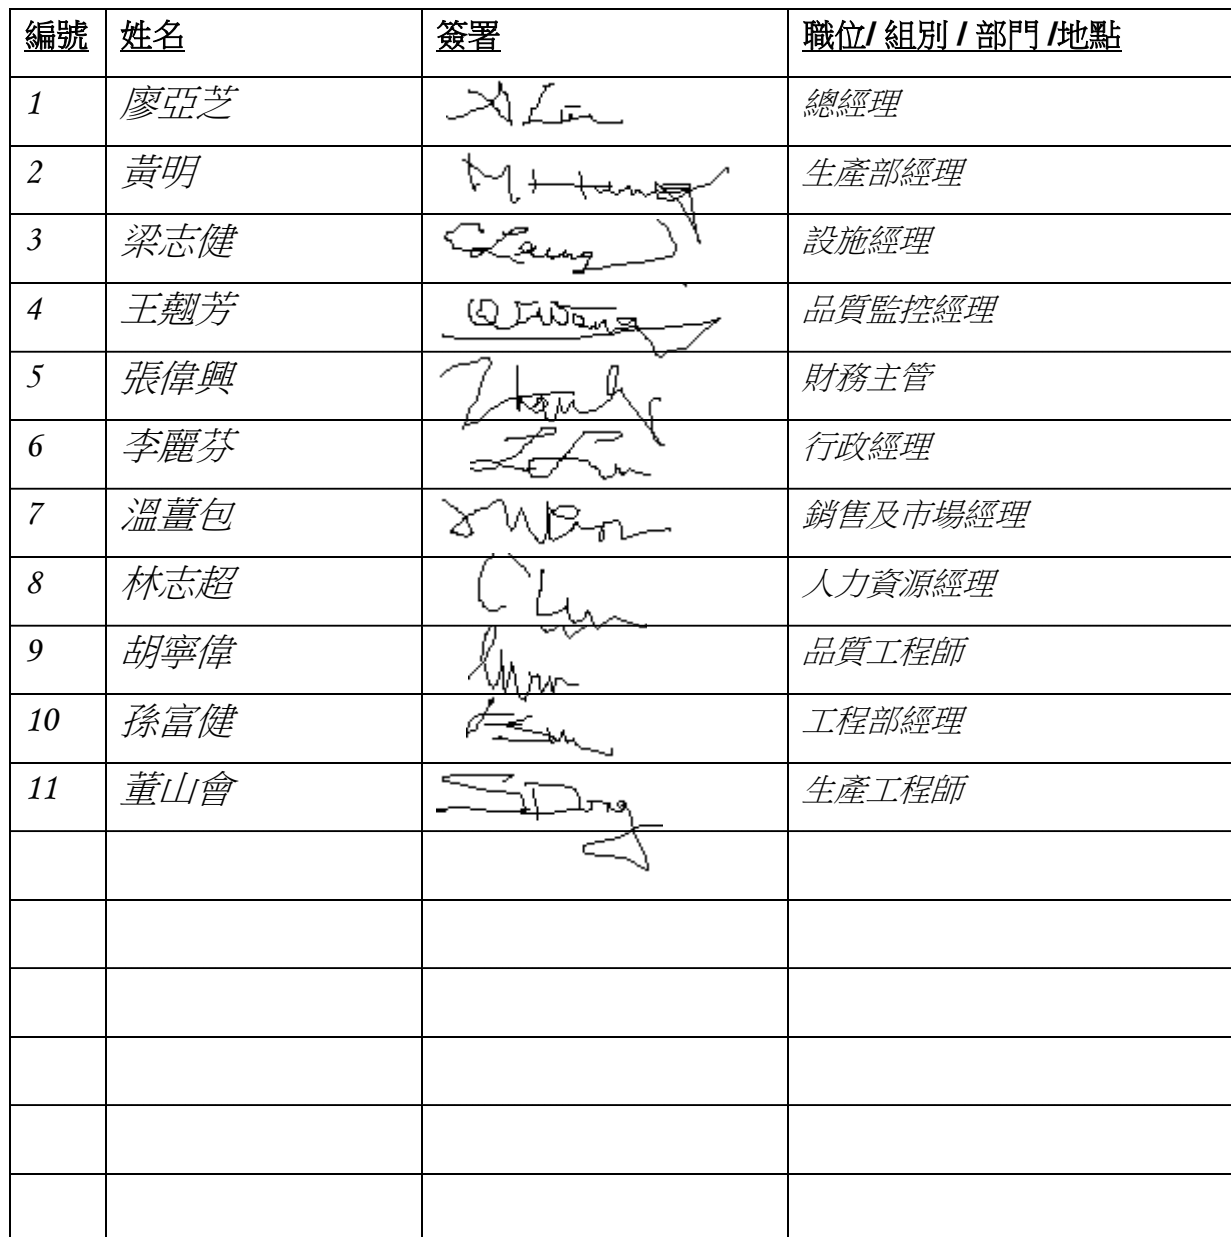 編號 姓名 簽署 職位/ 組別 / 部門 /地點
1 廖亞芝 A Lin 總經理
2 黃明 M Hang 生產部經理
3 梁志健 C Leung 設施經理
4 王翹芳 Wang 品質監控經理
5 張偉興 財務主管
6 李麗芬 行政經理
7 溫薑包 銷售及市場經理
8 林志超 人力資源經理
9 胡寧偉 品質工程師
10 孫富健 工程部經理
11 董山會 生產工程師